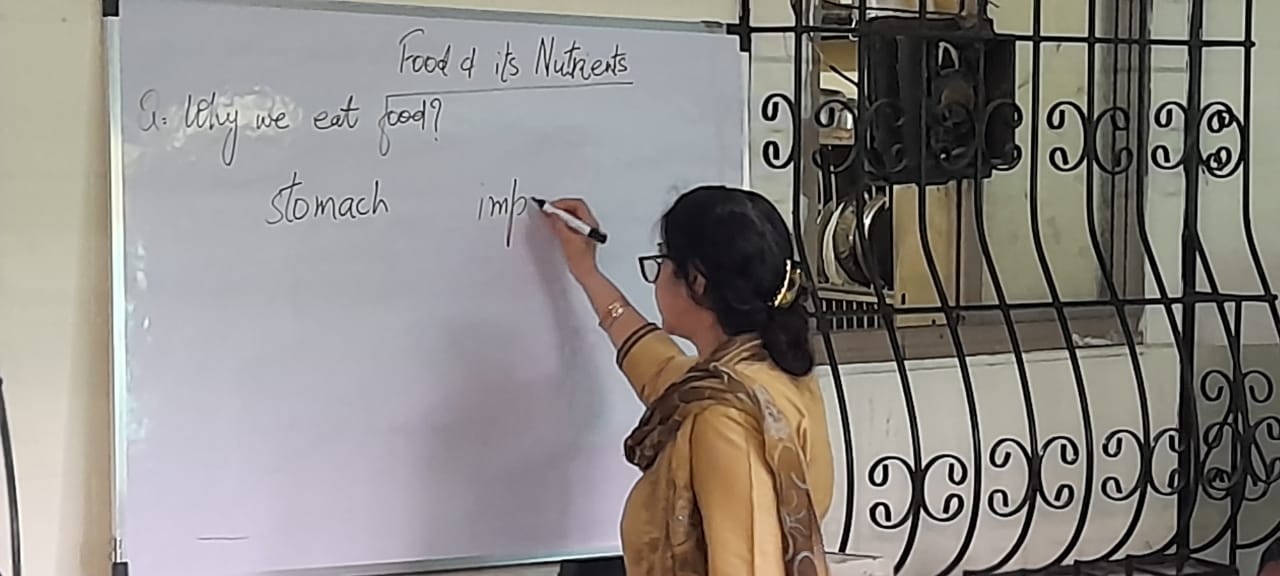 Food & its Nutrients
Q: Why we eat food?
stomach imp